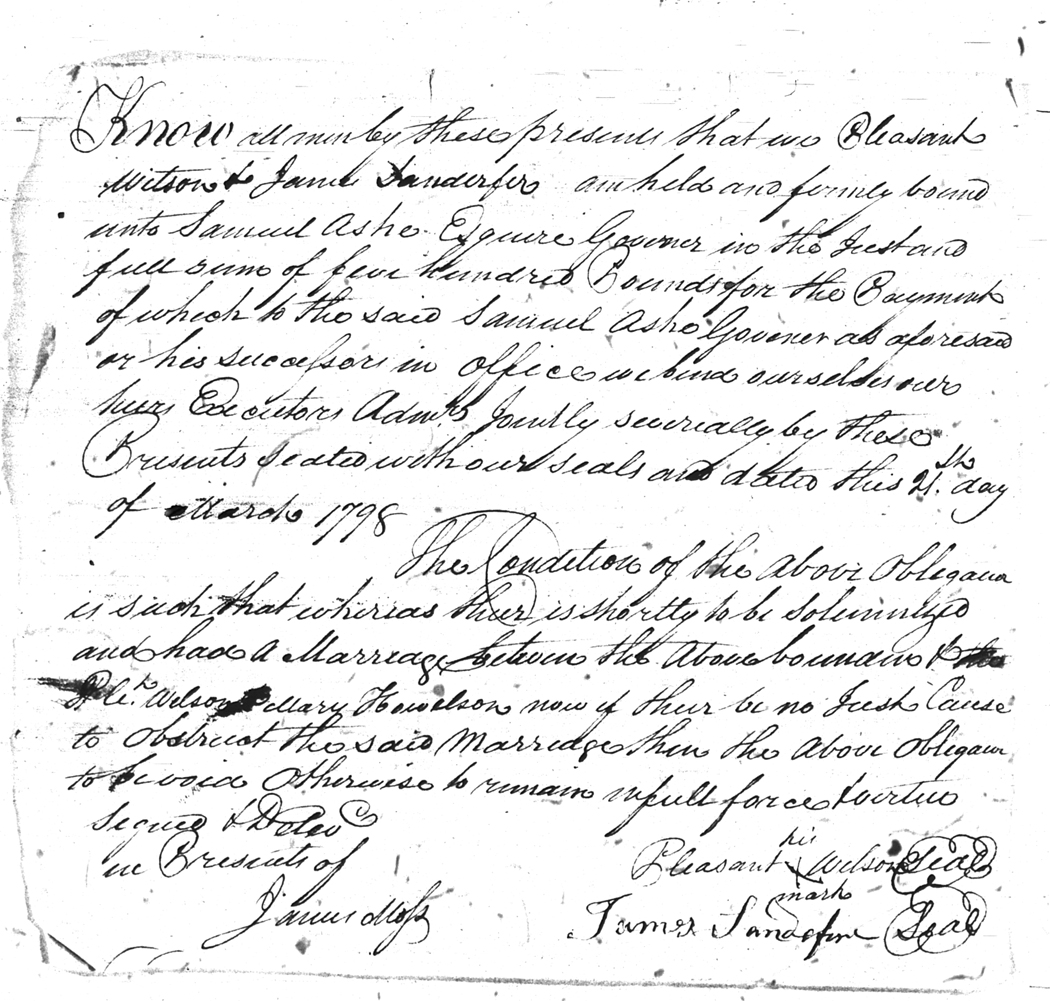 Know all men by these presents that we Pleasant
Wilson & James Sanderfer am held and firmly bound
unto Samuel Ashe Esquire Govener in the Just and
full sum of five Hundred Pounds for the Payment
of which to the said Samuel Ashe Govener as aforesaid
or his successors in office we bind ourselves our
heirs Executors Admrs. Jointly severally by these
Presents sealed with our seals and dated this 21.th day
of March 1798
The Condition of the Above Obligation
is such that whereas their is shortly to be Solemnized
and had a Marriage between the Above bounden &
Plt. Wilson & Mary Howelson now if their be no Just Cause
to obstruct the said Marriage then the Above Obligation
to be void Otherwise to remain in full force & vertue
Signed &
in Presents of
James Moss
Pleasant his Wilson Seal
mark
James Sandefur Seal